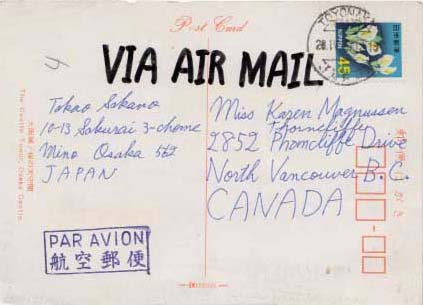 Post Card
VIA AIR MAIL
TOYONAKA
日本郵便
NIPPON
45
Takao Sakano
10-13 Sakurai 3-chome
Mino Osaka 562
JAPAN
Miss Karen Magnussen
Thorncliffe
2852 Phomcliffe Drive
North Vancouver B.C.
CANADA
PAR AVION
航空郵便
The Castle Tower, Osaka Castle.
郵便はがき